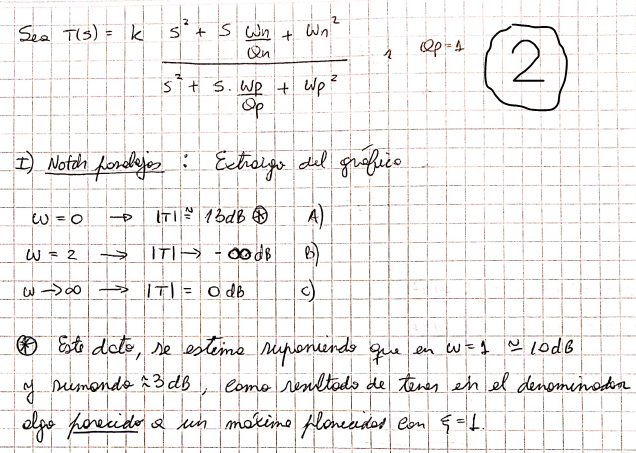 Sea T(s) = k (s² + s ωn/Qn + ωn²) / (s² + s. ωp/Qp + ωp²) , Qp=1
2
I) Notch pasabajos : Extraigo del gráfico
ω = 0 → |T| ≅ 13dB ⊛ A)
ω = 2 → |T| → -∞ dB B)
ω → ∞ → |T| = 0 dB C)
⊛ Este dato, se estima suponiendo que en ω=1 ≃ 10dB
y sumando ≈3 dB, como resultado de tener en el denominador
algo parecido a un máxima planicidad con ξ=1.